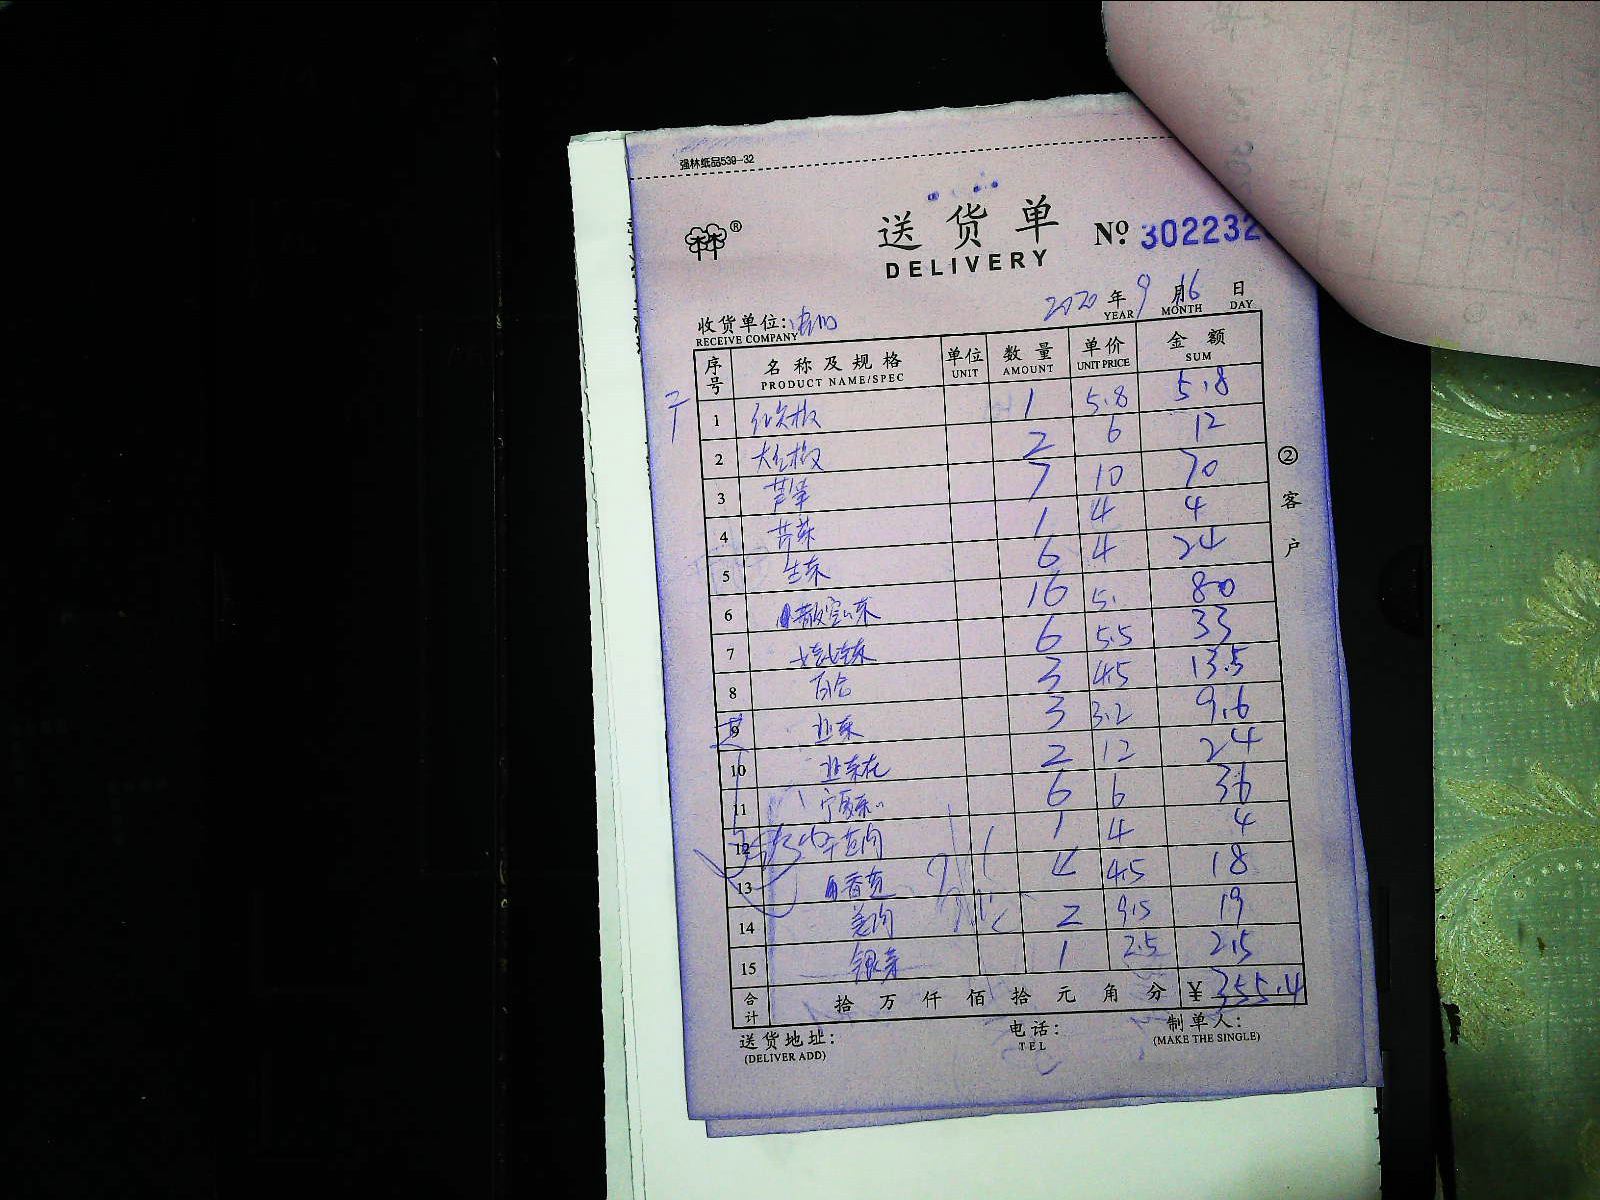 强林纸品539-32
送货单 № 302232
DELIVERY
2020 年 9 月 16 日
YEAR MONTH DAY
收货单位:
RECEIVE COMPANY
序号 名称及规格 单位 数量 单价 金额
PRODUCT NAME/SPEC UNIT AMOUNT UNIT PRICE SUM
1 1 5.8 5.8
2 大红椒 2 6 12
3 芦笋 7 10 70
4 芹菜 1 4 4
5 生菜 6 4 24
6 16 5. 80
7 6 5.5 33
8 百合 3 4.5 13.5
9 韭菜 3 3.2 9.6
10 2 12 24
11 6 6 36
12 1 4 4
13 4 4.5 18
14 2 9.5 19
15 银芽 1 2.5 2.5
合计 拾 万 仟 佰 拾 元 角 分 ¥ 355.4
送货地址: 电话: 制单人:
(DELIVER ADD) TEL (MAKE THE SINGLE)
②客户